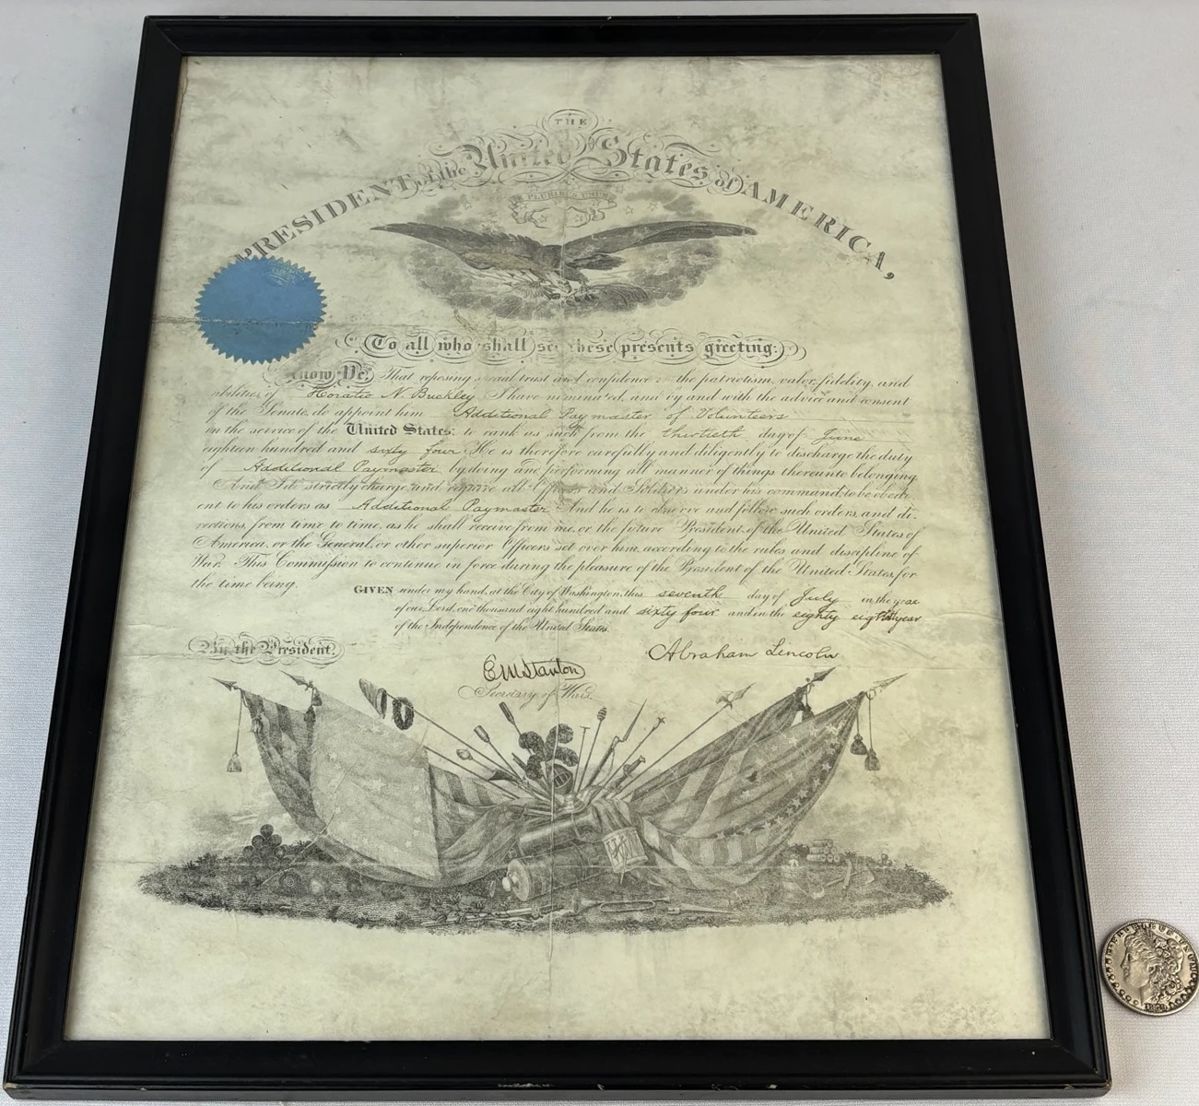 THE
PRESIDENT of the United States of AMERICA,
PLURIBUS UNUM
To all who shall see these presents greeting:
Know Ye, That reposing special trust and confidence in the patriotism, valor, fidelity, and
abilities of Horatio N. Buckley, I have nominated, and by and with the advice and consent
of the Senate, do appoint him Additional Paymaster of Volunteers
in the service of the United States: to rank as such from the thirtieth day of June
eighteen hundred and sixty four. He is therefore carefully and diligently to discharge the duty
of Additional Paymaster by doing and performing all manner of things thereunto belonging.
And I do strictly charge and require all Officers and Soldiers under his command, to be obedi-
ent to his orders as Additional Paymaster. And he is to observe and follow such orders, and di-
rections, from time to time, as he shall receive from me, or the future President of the United States of
America, or the General, or other superior Officers set over him, according to the rules and discipline of
War. This Commission to continue in force during the pleasure of the President of the United States, for
the time being.
GIVEN under my hand, at the City of Washington, this seventh day of July in the year
of our Lord, one thousand eight hundred and sixty four and in the eighty eighth year
of the Independence of the United States.
By the President,
Abraham Lincoln
E M Stanton
Secretary of War.